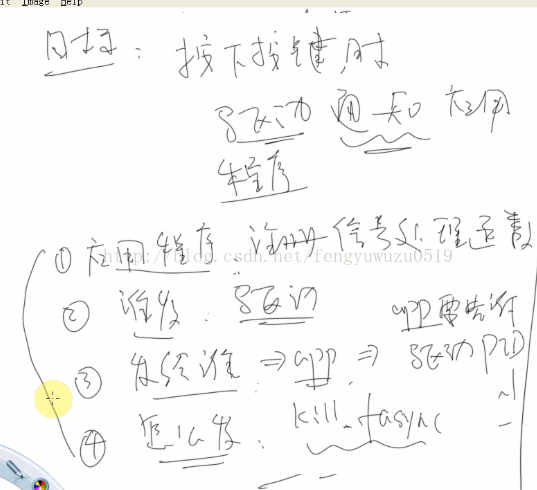 Image Help
目标：按下按键时
驱动通知应用
程序
①应用程序 注册信号处理函数
http://blog.csdn.net/fengyuwuzu0519
②谁发：驱动
③发给谁 ⇒ app ⇒ app要告诉驱动PID
④怎么发：kill_fasync